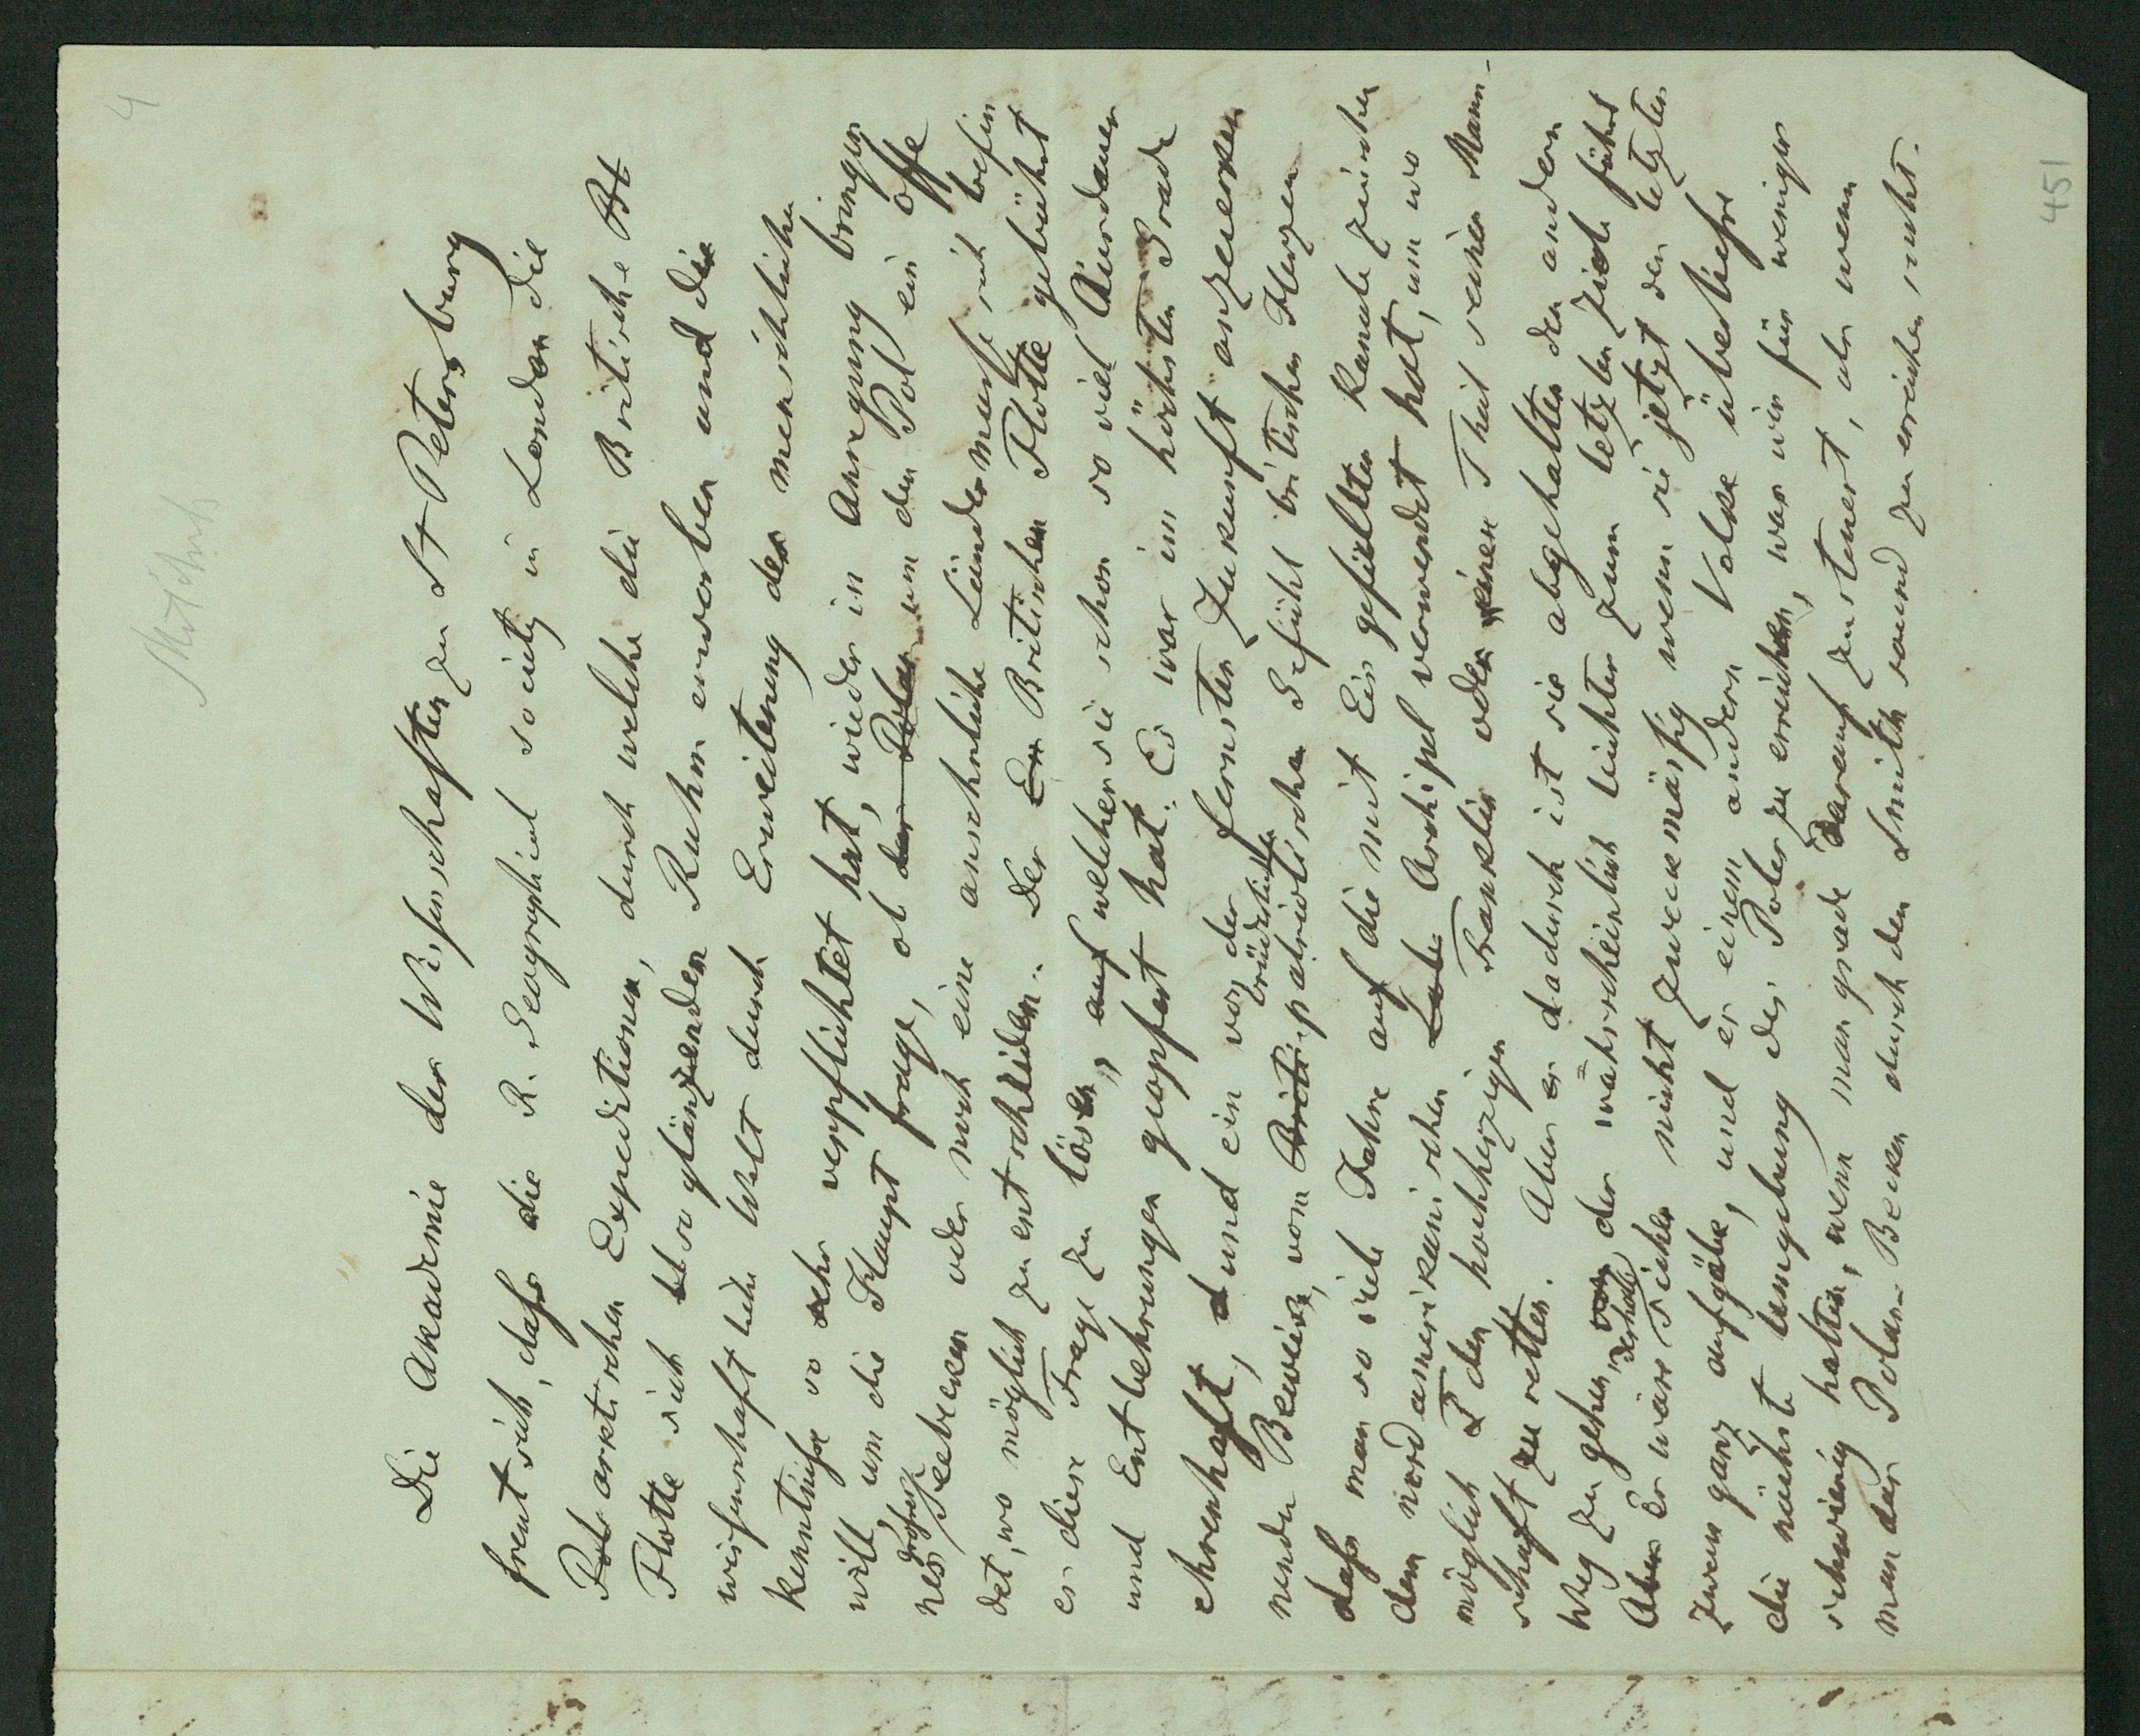 4
Die Akademie der Wissenschaften zu St Petersburg
freut sich, dass die R. Geographical society in London die
Pol arktischen Expeditionen, durch welche die Britische Bt
Flotte sich so glänzenden Ruhm erworben und die
wissenschaftliche Welt durch Erweiterung der menschlichen
Kenntnisse so sehr verpflichtet hat, wieder in Anregung bringen
will, um die Haupt frage, ob der Polar um den Pol ein offe
nes grosses Seebecken oder noch eine ansehnliche Ländermasse sich befin
det, wo möglich zu entscheiden. Der En Britischen Flotte gebührt
es diese Frage zu lösen, auf welcher sie schon so viel Ausdauer
und Entbehrungen geopfert hat. Es war im höchsten Grade
ehrenhaft, d und ein von der fernsten Zukunft anzuerken
nender Beweis, vom Briti patriotischen brüderlichen Gefühl britischer Herzen
dass man so viele Jahre auf die mit Eis gefüllten Kanäle zwischen
dem nordamerikanischen Archipel verwendet hat, um wo
möglich F den hochherzigen Franklin oder einen Theil seiner Mann-
schaft zu retten. Aber er dadurch ist sie abgehalten den andern
Weg zu gehen, der wahrscheinlich leichter zum letzten Ziele führt
Aber Er wäre sicher nicht zweckmässig wenn sie jetzt den letzten
Zweck ganz aufgäbe, und er einem andern Volke überliesse
die nächste Umgebung des Poles zu erreichen, was wir für weniger
schwierig halten, wenn man grade darauf zu steuert, als wenn
man das Polar-Becken durch den Smith sound zu erreichen sucht.
451